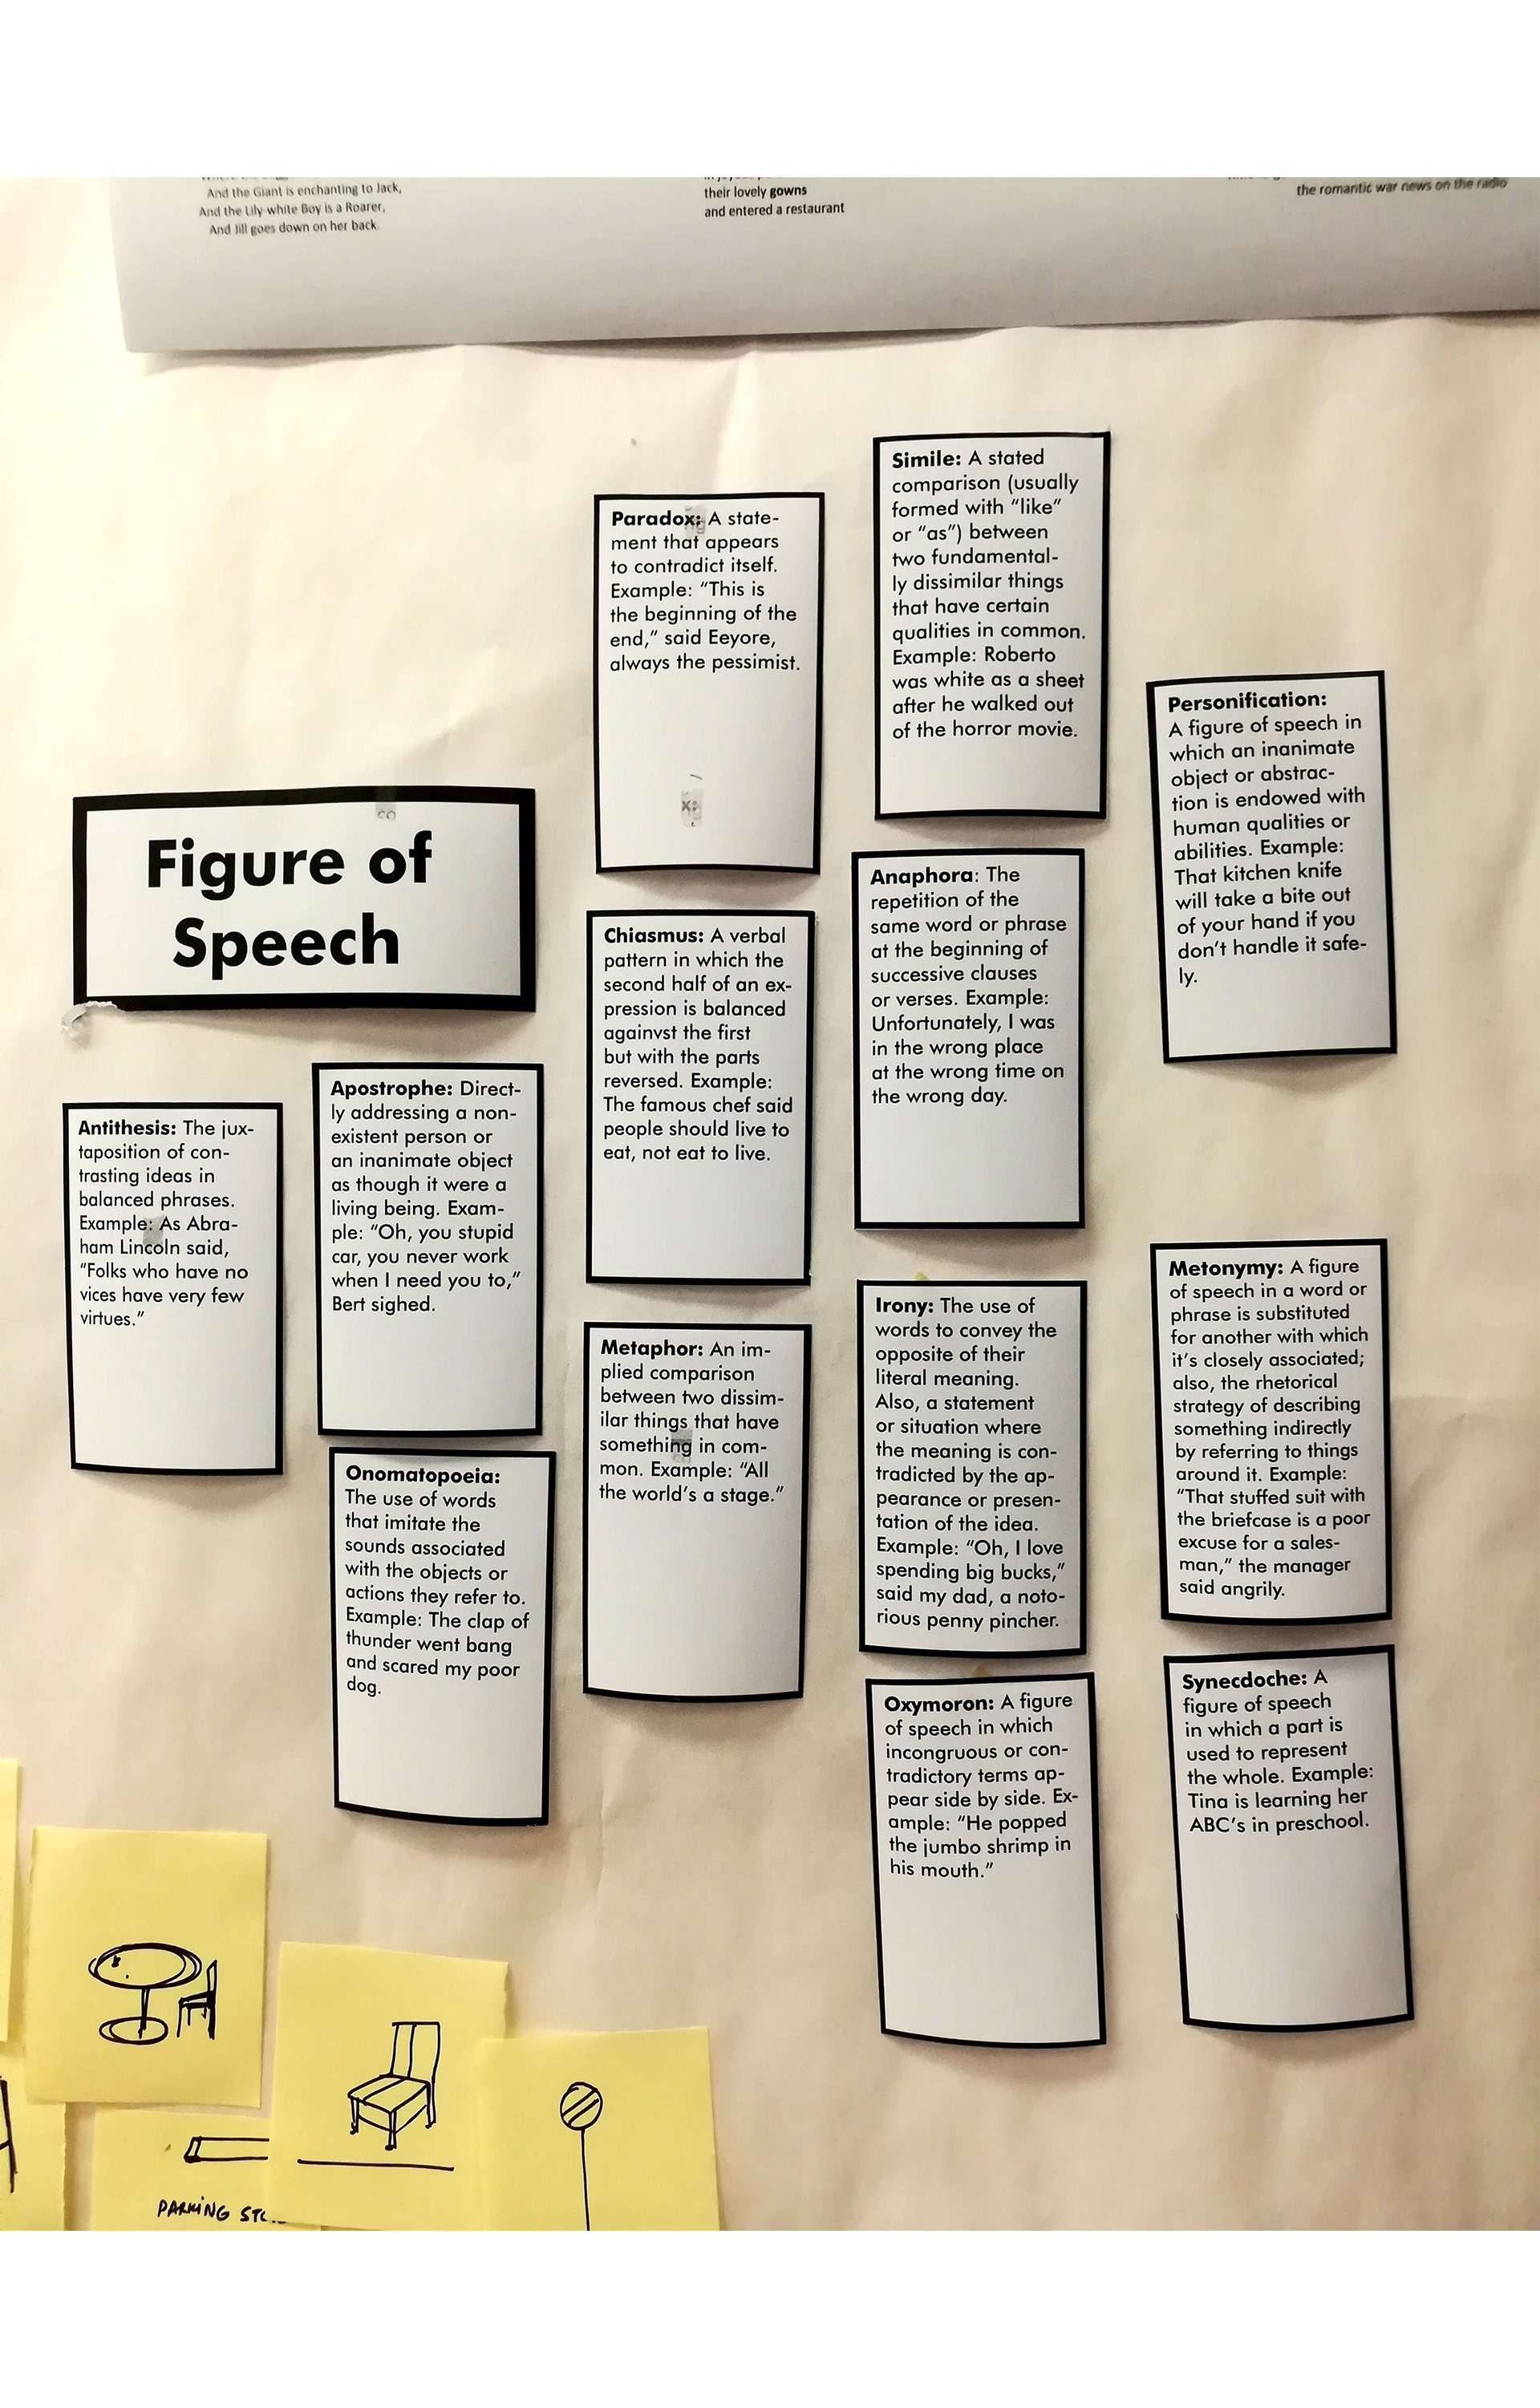 And the Giant is enchanting to Jack,
And the Lily-white Boy is a Roarer,
And Jill goes down on her back.
their lovely gowns
and entered a restaurant
the romantic war news on the radio
Figure of
Speech
Antithesis: The jux-
taposition of con-
trasting ideas in
balanced phrases.
Example: As Abra-
ham Lincoln said,
“Folks who have no
vices have very few
virtues.”
Apostrophe: Direct-
ly addressing a non-
existent person or
an inanimate object
as though it were a
living being. Exam-
ple: “Oh, you stupid
car, you never work
when I need you to,”
Bert sighed.
Onomatopoeia:
The use of words
that imitate the
sounds associated
with the objects or
actions they refer to.
Example: The clap of
thunder went bang
and scared my poor
dog.
Paradox: A state-
ment that appears
to contradict itself.
Example: “This is
the beginning of the
end,” said Eeyore,
always the pessimist.
Chiasmus: A verbal
pattern in which the
second half of an ex-
pression is balanced
againvst the first
but with the parts
reversed. Example:
The famous chef said
people should live to
eat, not eat to live.
Metaphor: An im-
plied comparison
between two dissim-
ilar things that have
something in com-
mon. Example: “All
the world’s a stage.”
Simile: A stated
comparison (usually
formed with “like”
or “as”) between
two fundamental-
ly dissimilar things
that have certain
qualities in common.
Example: Roberto
was white as a sheet
after he walked out
of the horror movie.
Anaphora: The
repetition of the
same word or phrase
at the beginning of
successive clauses
or verses. Example:
Unfortunately, I was
in the wrong place
at the wrong time on
the wrong day.
Irony: The use of
words to convey the
opposite of their
literal meaning.
Also, a statement
or situation where
the meaning is con-
tradicted by the ap-
pearance or presen-
tation of the idea.
Example: “Oh, I love
spending big bucks,”
said my dad, a noto-
rious penny pincher.
Oxymoron: A figure
of speech in which
incongruous or con-
tradictory terms ap-
pear side by side. Ex-
ample: “He popped
the jumbo shrimp in
his mouth.”
Personification:
A figure of speech in
which an inanimate
object or abstrac-
tion is endowed with
human qualities or
abilities. Example:
That kitchen knife
will take a bite out
of your hand if you
don’t handle it safe-
ly.
Metonymy: A figure
of speech in a word or
phrase is substituted
for another with which
it’s closely associated;
also, the rhetorical
strategy of describing
something indirectly
by referring to things
around it. Example:
“That stuffed suit with
the briefcase is a poor
excuse for a sales-
man,” the manager
said angrily.
Synecdoche: A
figure of speech
in which a part is
used to represent
the whole. Example:
Tina is learning her
ABC’s in preschool.
PARKING